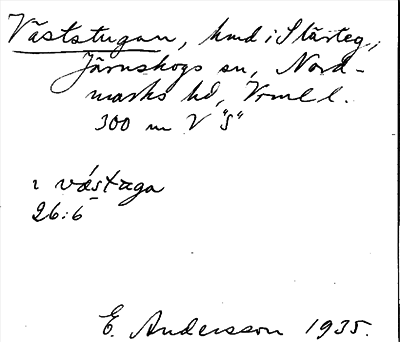 Väststugan, hmd i Stårteg,
Järnskogs sn, Nord-
marks hd, Vrml l.
300 m V "S"
ı västaga
26:6
E. Andersson 1935.